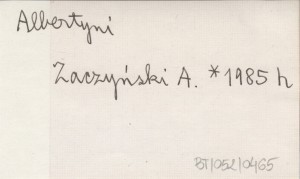 Albertyni
Zaczyński A. * 1985 h
BT/052/0465